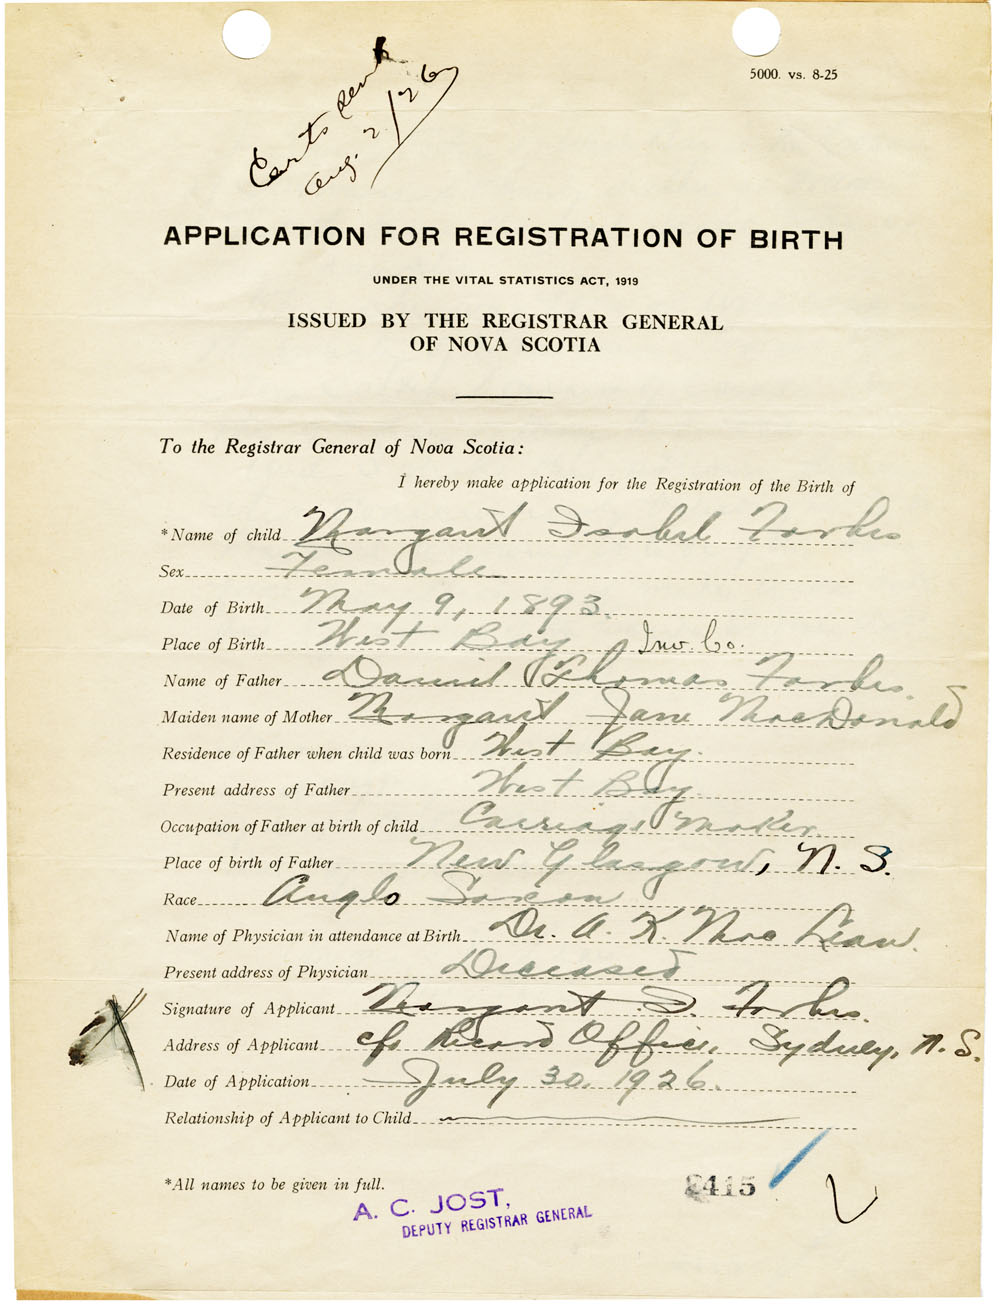 5000. vs. 8-25
Certs sent
Aug. 2/26
APPLICATION FOR REGISTRATION OF BIRTH
UNDER THE VITAL STATISTICS ACT, 1919
ISSUED BY THE REGISTRAR GENERAL
OF NOVA SCOTIA
To the Registrar General of Nova Scotia:
I hereby make application for the Registration of the Birth of
*Name of child Margaret Isobel Forbes
Sex Female
Date of Birth May 9, 1893
Place of Birth West Bay Inv. Co.
Name of Father Daniel Thomas Forbes.
Maiden name of Mother Margaret Jane MacDonald
Residence of Father when child was born West Bay.
Present address of Father West Bay
Occupation of Father at birth of child Carriage Maker.
Place of birth of Father New Glasgow, N. S.
Race Anglo Saxon
Name of Physician in attendance at Birth Dr. A. K. Mac Lean.
Present address of Physician Deceased
Signature of Applicant Margaret I. Forbes.
Address of Applicant c/o Record Office, Sydney, N. S.
Date of Application July 30, 1926.
Relationship of Applicant to Child
*All names to be given in full.
415
A. C. JOST,
DEPUTY REGISTRAR GENERAL